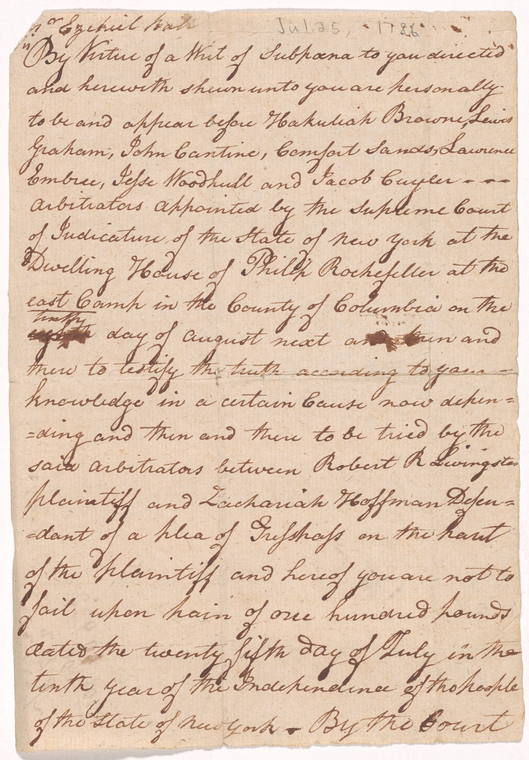 Mr Ezekiel Hall Jul 25, 1786
By Virtue of a Writ of Subpœna to you directed
and herewith shewn unto you are personally
to be and appear before Hakuliah Browne, Lewis
Graham, John Cantine, Comfort Sands, Lawrence
Embree, Jesse Woodhull and Jacob Cuyler - - -
arbitrators appointed by the Supreme Court
of Judicature of the State of New York at the
Dwelling House of Philip Rockefeller at the
east Camp in the County of Columbia on the
day of August next and then and
there to testify the truth according to your
knowledge in a certain Cause now depen=
=ding and then and there to be tried by the
said arbitrators between Robert R Livingston
plaintiff and Zachariah Hoffman Defen=
=dant of a plea of Tresspass on the part
of the plaintiff and hereof you are not to
fail upon pain of one hundred pounds
dated the twenty fifth day of July in the
tenth year of the Independence of the people
of the State of New York - By the Court